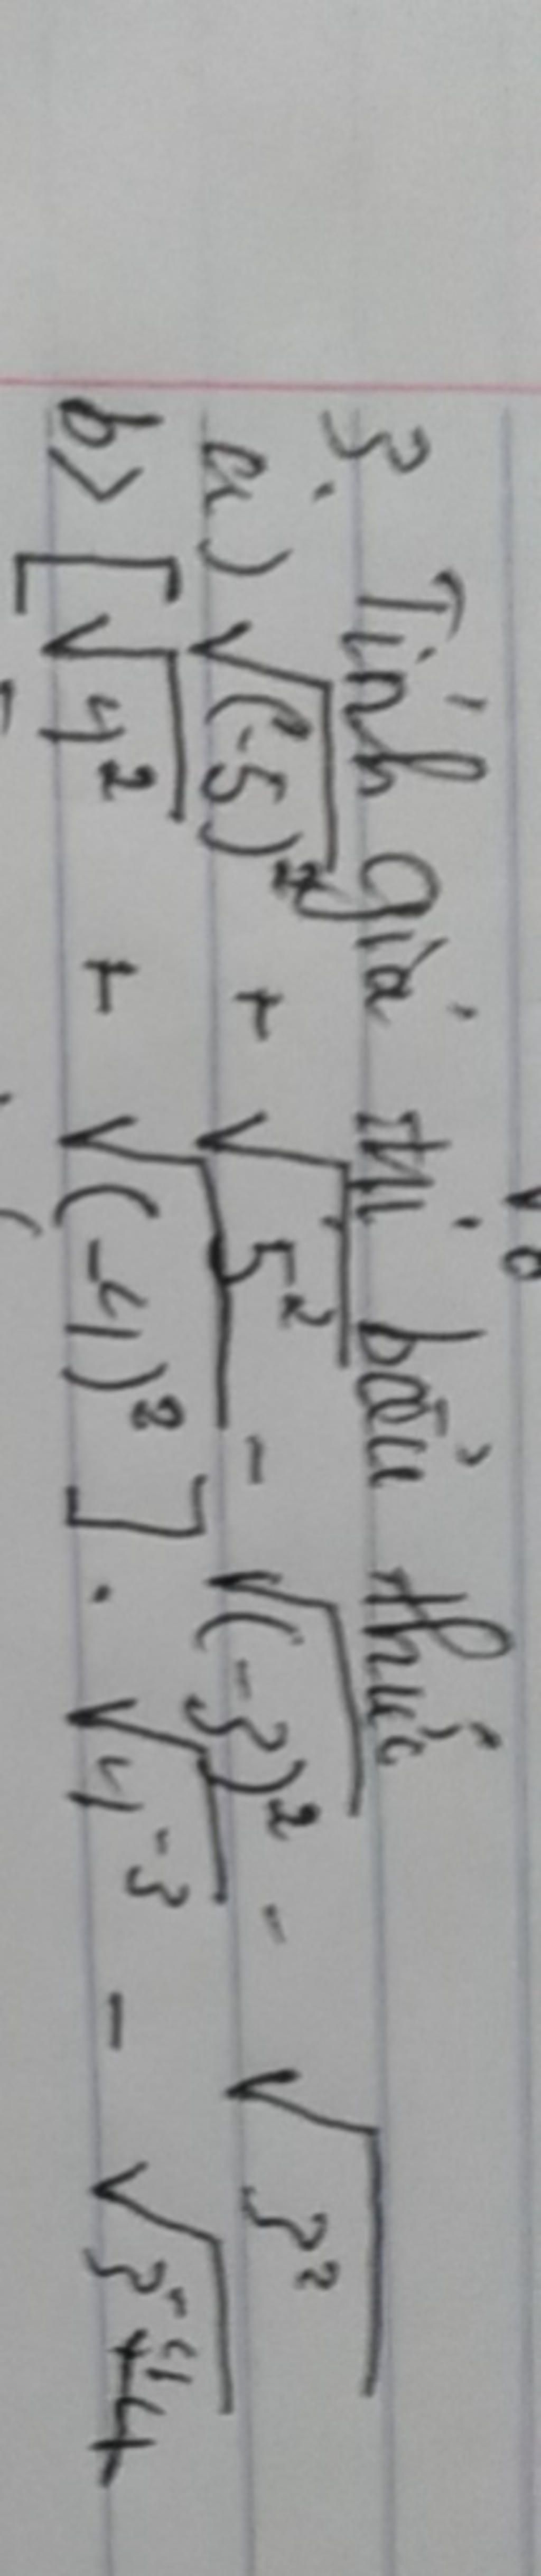 3. Tính giá trị biểu thức
a) √(-5)² + √5² - √(-3)² - √3²
b) [√4² + √(-4)²] . √4⁻³ - √3⁻⁴